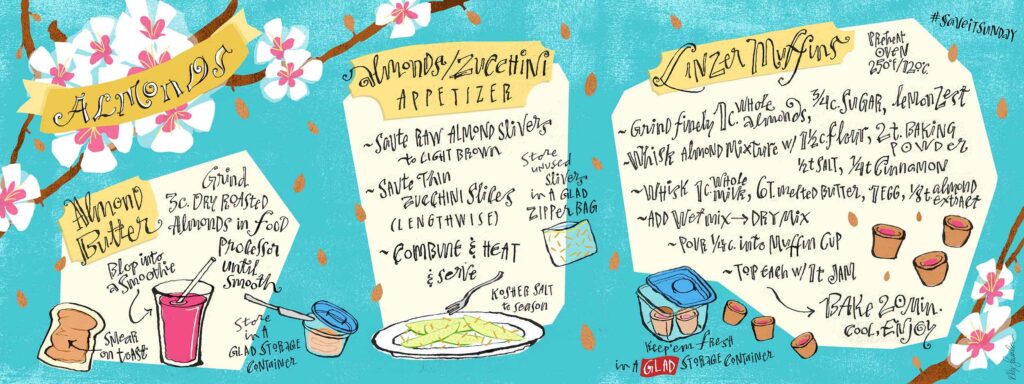 #SaveitSunday
ALMONDS
Almond
Butter
Grind
3c. DRY ROASTED
Almonds in food
Processor
until
smooth
Blop into
a Smoothie
Smear
on toast
Store
in A
GLAD STORAGE
CONTAINER
Almonds/Zucchini
APPETIZER
~Sauté RAW ALMOND Slivers
to LIGHT BROWN
~Sauté Thin
Zucchini Slices
(LENGTHWISE)
~ Combune & HEAT
& Serve
KOSHER SALT
to season
Store
unused
Slivers
in A GLAD
ZIPPER BAG
Linzer Muffins
PREHEAT
OVEN
250°F/120°C.
~Grind finely 1c. Whole almonds, 3/4c. SUGAR, lemon Zest
~Whisk Almond Mixture w/ 1 1/2c flour, 2t. BAKING POWDER
1/2t SALT, 1/4t Cinnamon
~Whisk 1c. Whole milk, 6T. melted BUTTER, 1 EGG, 1/8t almond extract
~ADD Wet mix → DRY MIX
~ POUR 1/4c. into Muffin Cup
~ TOP EACH w/ 1t JAM
BAKE 20 Min.
COOL, ENJOY
Keep 'em fresh
in A GLAD STORAGE CONTAINER